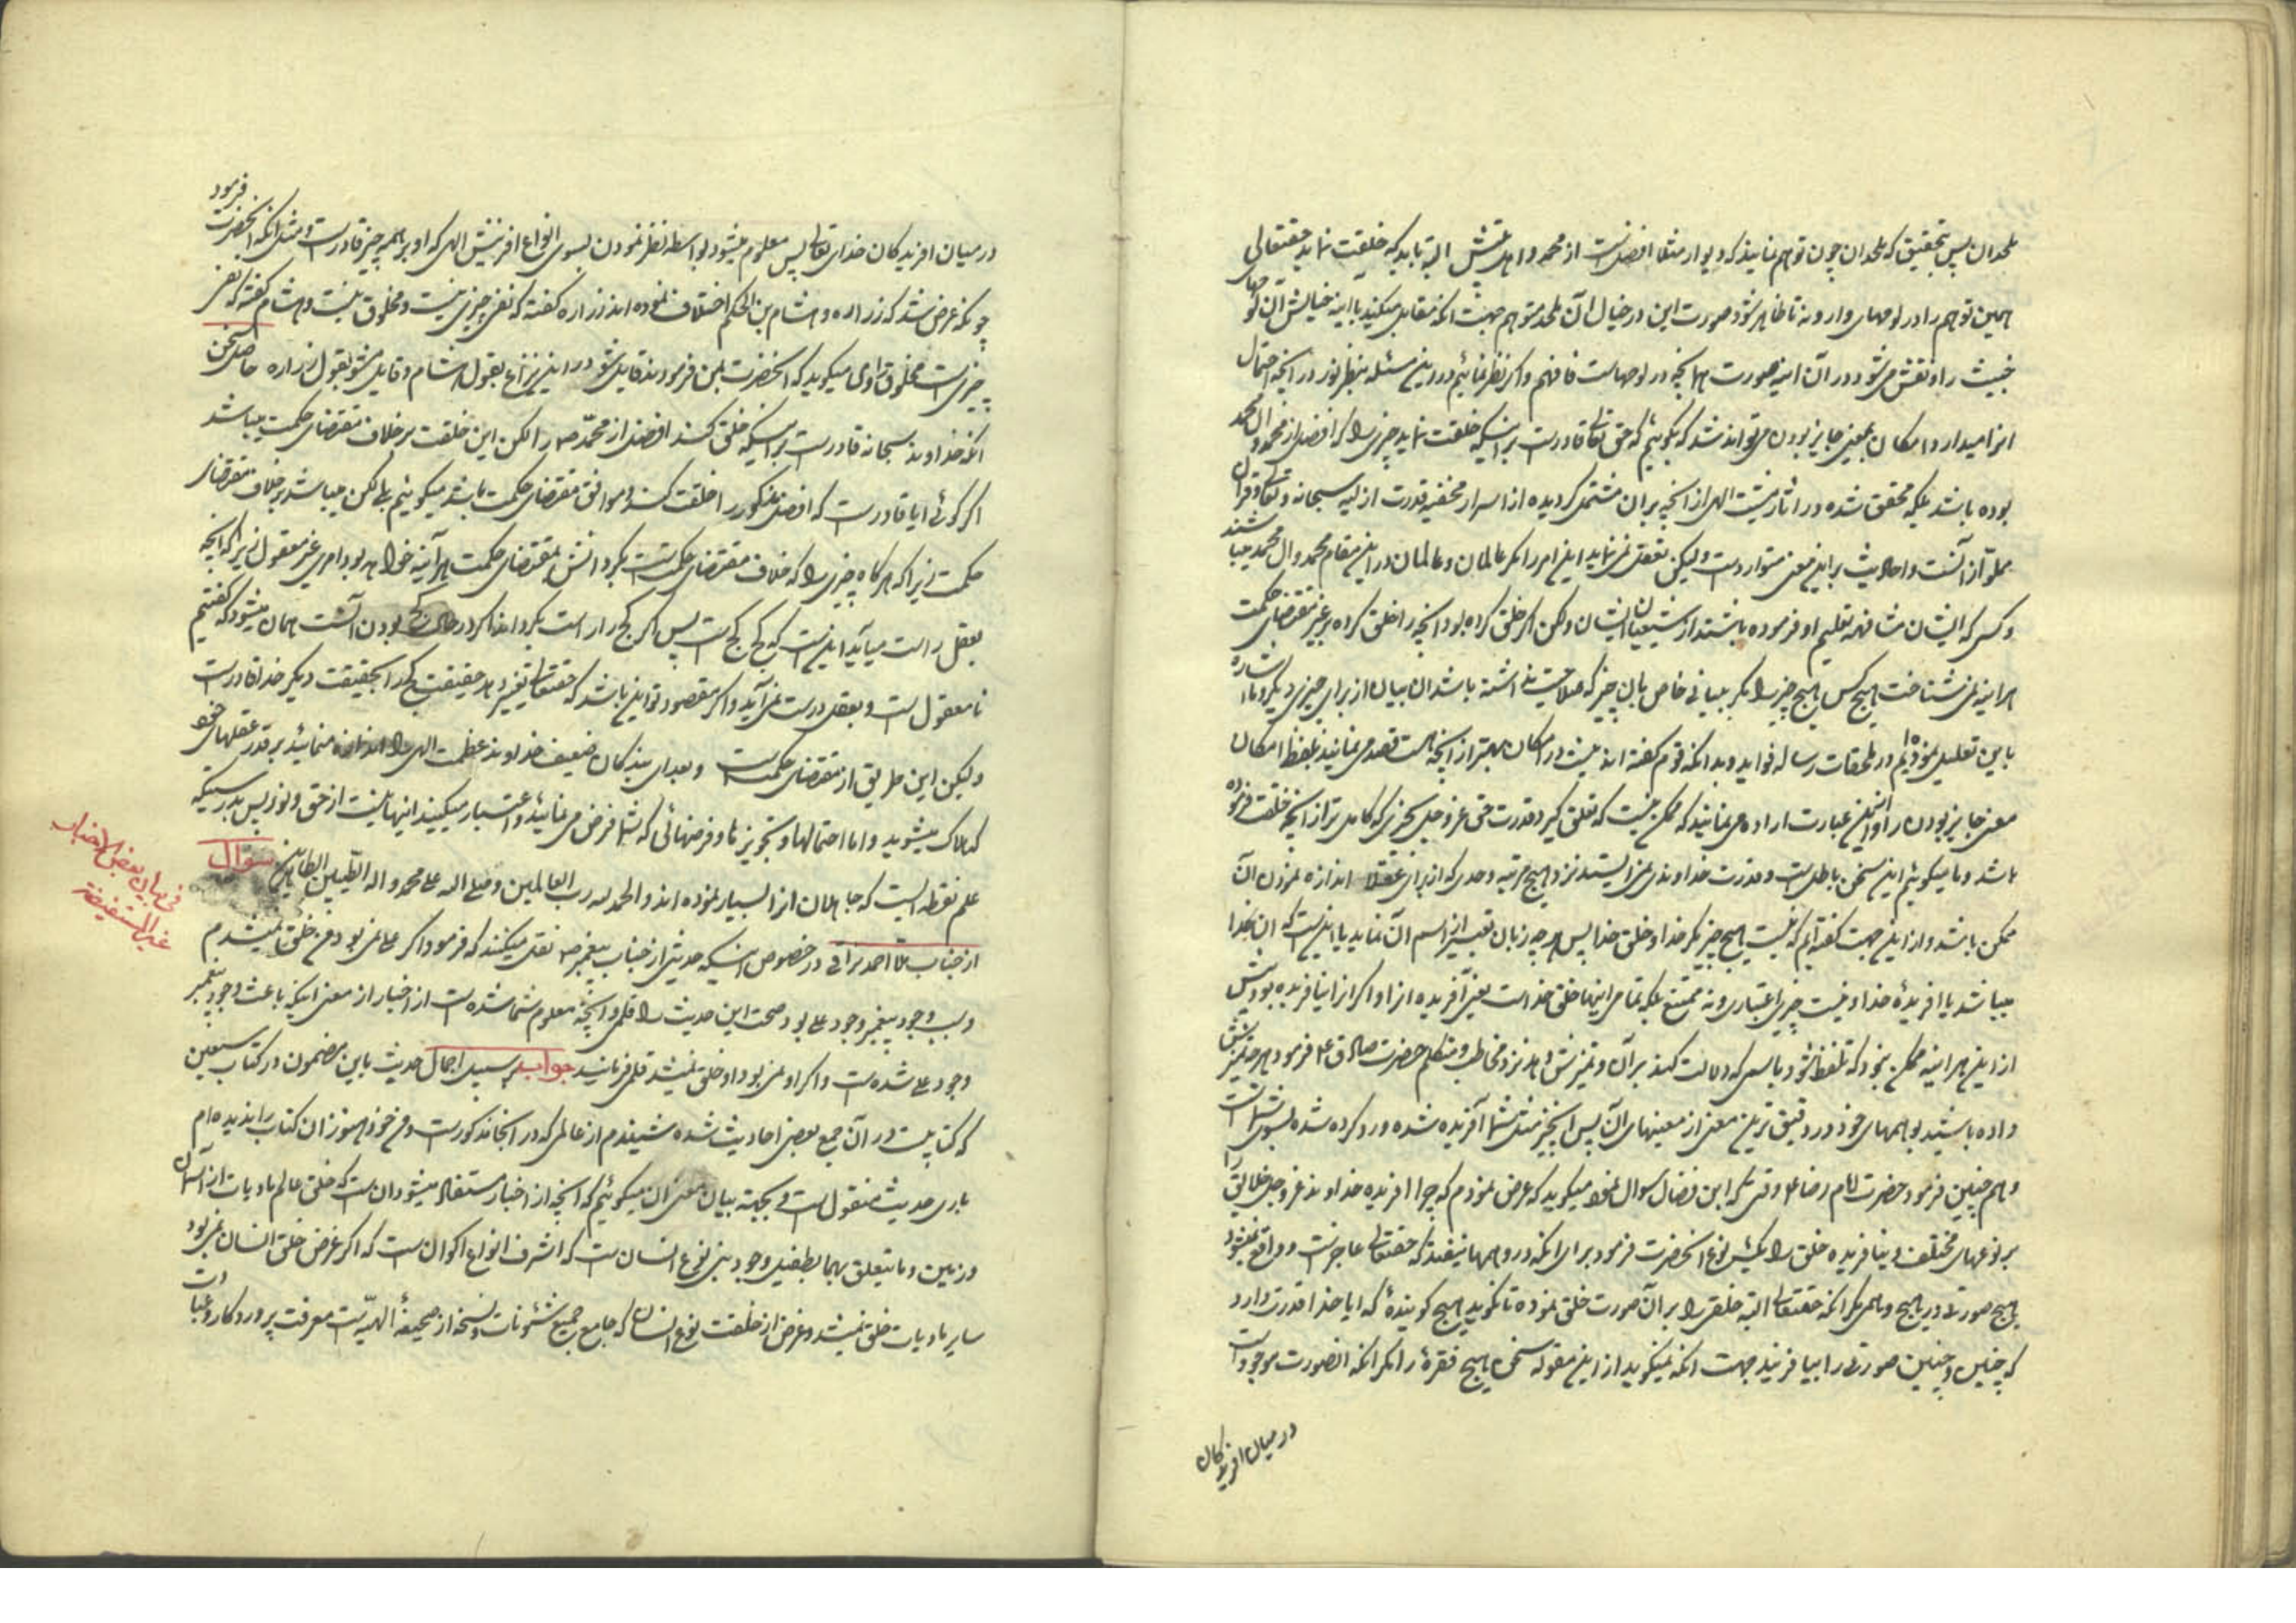 ملحدان پس بتحقیق که ملحدان چون توهم نمایند که دیوار مثلا افضلست از محمد و اهل بیتش البته باید که خلیقت نماید حقتعالی
همین توهم را در لوحهای وارونه تا ظاهر شود صورت این در خیال آن ملحد متوهم جهت آنکه مقابل میکند با اینه خیالش آن لوحهای
خبیث را و نقش میشود در آن اینه صورت آنچه در لوحهاست فافهم و اگر نظر نمائیم در این مسئله بنظر نور در آنچه احتمال
امکان بمعنی جایز بودن میتواند شد که بگوئیم که حق تعالی قادرست بر اینکه خلقت نماید چیزی را که افضل از محمد و آل محمد
بوده باشد بلکه محقق شده در اثار مشیت الهی از آنچه بران مشتمل گردیده از اسرار مخفیه قدرت ازلیه سبحانه و تعالی و قرآن
مملو از آنست و احادیث بر این معنی متواردست و لیکن تعقل نمی نماید این امر را مگر عالمان و عالمان در این مقام محمد و آل محمد میباشند
و کسی که ایشان مشافهه تعلیم او فرموده باشند از شیعیان ایشان و لکن اگر خلق کرده بود آنچه را خلق کرده بر غیر مقتضای حکمت
هر اینه نمی شناخت هیچ کس هیچ چیز را مگر ببیانی خاص بان چیز که صلاحیت نداشته باشد ان بیان از برای چیزی دیگر و ما اشاره
باین تعلیل نموده ایم در ملحقات رساله فواید و بدانکه قوم گفته اند نیست در امکان بهتر از آنچه هست قصد می نمایند بلفظ امکان
معنی جایز بودن را و از این عبارت اراده می نمایند که ممکن نیست که تعلق گیرد قدرت حق عز و جل بچیزی که کامل تر از آنچه خلقت فرموده
باشد و ما میگوئیم این سخن باطلست و قدرت خداوندی نمی ایستد نزد هیچ مرتبه و حدی که از برای عقلا اندازه نمودن آن
ممکن باشد و از این جهت گفته ایم که نیست هیچ چیز مگر خدا و خلق خدا پس هر چه زبان تعبیر از اسم آن نماید یا اینست که ان خدا
میباشد یا افریدهٔ خدا و نیست چیزی اعتباری و نه ممتنع بلکه تمامی اینها خلق خداست یعنی آفریده انرا و اگر انرا نیافریده بود پیش
از این هر اینه ممکن نبود که تلفظ شود باسمی که دلالت کند بر آن و تمیزش دهد نزد مخاطب و متکلم حضرت صادق ع فرمود هر چه تمیزش
داده باشید بوهمهای خود در دقیق ترین معنی از معنیهای آن پس انچیز مثل شما آفریده شده و رد کرده شده بسوی شماست
و هم چنین فرمود حضرت امام رضا ع وقتی که ابن فضال سوال نمود میگوید که عرض نمودم که چرا افریده خداوند عز و جل خلائق را
بر نوعهای مختلف و نیافریده خلق را یک نوع انحضرت فرمود برای انکه در وهمها نیفتد که حقتعالی عاجزست و واقع نمیشود
هیچ صورتی در هیچ وهمی مگر انکه حقتعالی البته خلقی را بر آن صورت خلق نموده تا نگوید هیچ گویندهٔ که ایا خدا قدرت دارد
که چنین و چنین صورتی را بیافریند جهت انکه نمیگوید از این مقوله سخن هیچ فقرهٔ را مگر انکه انصورت موجودست
در میان افریدگان
در میان افریدگان خدای تعالی پس معلوم میشود بواسطه نظر نمودن بسوی انواع افرینش الهی که او بر همه چیز قادرست و مثل انکه انحضرت فرمود
چونکه عرض شد که زراره و هشام بن الحکم اختلاف نموده اند زراره گفته که نفی چیزی نیست و مخلوق نیست و هشام گفته که نفی
چیزیست مخلوق راوی میگوید که انحضرت بمن فرمودند قایل شو در این نزاع بقول هشام و قایل مشو بقول زراره حاصل سخن
انکه خداوند سبحانه قادرست بر اینکه خلق کند افضل از محمد ص را لکن این خلقت بر خلاف مقتضای حکمت میباشد
اگر گوئی ایا قادرست که افضل مذکور را خلقت کند و موافق مقتضای حکمت باشد میگوئیم بلی لکن میباشد بر خلاف مقتضای
حکمت زیرا که هر گاه چیزی را که خلاف مقتضای حکمتست بگرداندش بمقتضای حکمت هر آینه خواهد بود امری غیر معقول زیرا که آنچه
بعقل راست میآید اینست که کج کجست پس اگر کج را راست بگرداند در حال کج بودن آنست همان میشود که گفتیم
نا معقولست و بعقل درست نمی آید و اگر مقصود تو این باشد که حقتعالی تغییر دهد حقیقت کج را بحقیقت دیگر خدا قادرست
و لیکن این طریق از مقتضای حکمتست و بعد ای بندگان ضعیف خداوند عظمت الهی را اندازه منمائید بر قدر عقلهای خود
که هلاک میشوید و اما احتمالها و تجویزها و فرضهائی که شما فرض می نمائید و اعتبار میکنید اینها نیست از حق و نور پس بدرستیکه
علم نقطه ایست که جاهلان انرا بسیار نموده اند و الحمد لله رب العالمین و صلی الله علی محمد و اله الطیبین الطاهرین سوال
از جناب ملا احمد نراقی در خصوص اینکه حدیثی از جناب پیغمبر ص نقل میکنند که فرمود اگر علی نمی بود من خلق نمیشدم
و سبب وجود پیغمبر وجود علی بود صحت این حدیث را قلمی و آنچه معلوم شما شده است از اخبار از معنی اینکه باعث وجود پیغمبر
وجود علی شده است و اگر او نمی بود او خلق نمیشد قلمی فرمائید جواب بر سبیل اجمال حدیث باین مضمون در کتاب سبعین
که کتابیست در آن جمع بعضی احادیث شده شنیدم از عالمی که در آنجا مذکورست و من خود هنوز ان کتاب را ندیده ام
باری حدیث منقولست و بجهة بیان معنی آن میگوئیم که آنچه از اخبار مستفاد میشود ان است که خلق عالم مادیات از آسمان
و زمین و ما یتعلق بهما بطفیل وجود بنی نوع انسان ست که اشرف انواع اکوان ست که اگر غرض خلق انسان نمی بود
سایر مادیات خلق نمیشد و غرض از خلقت نوع انسان که جامع جمیع شئونات و نسخهٔ از صحیفهٔ الهیه ست معرفت پروردگار و عبادت
فی بیان بعض الاخبار
غیر المستفیضة